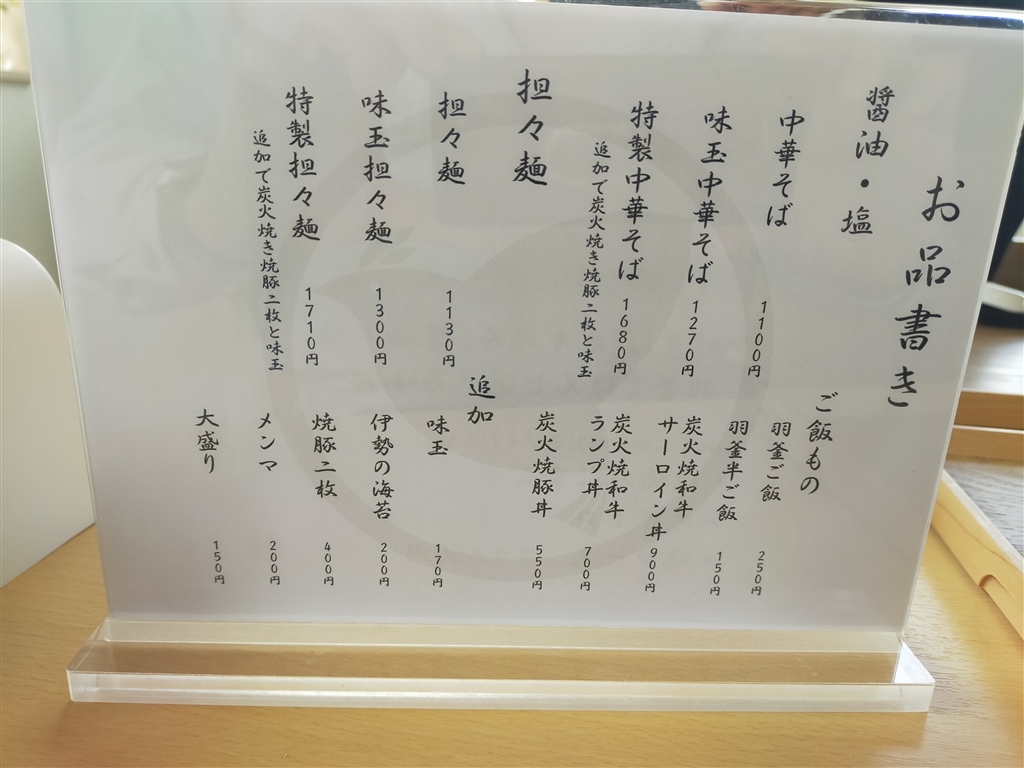 お品書き
醤油・塩
中華そば 1100円
味玉中華そば 1270円
特製中華そば 1680円
追加で炭火焼き焼豚二枚と味玉
担々麺
担々麺 1130円
味玉担々麺 1300円
特製担々麺 1710円
追加で炭火焼き焼豚二枚と味玉
ご飯もの
羽釜ご飯 250円
羽釜半ご飯 150円
炭火焼和牛
サーロイン丼 900円
炭火焼和牛
ランプ丼 700円
炭火焼豚丼 550円
追加
味玉 170円
伊勢の海苔 200円
焼豚二枚 400円
メンマ 200円
大盛り 150円